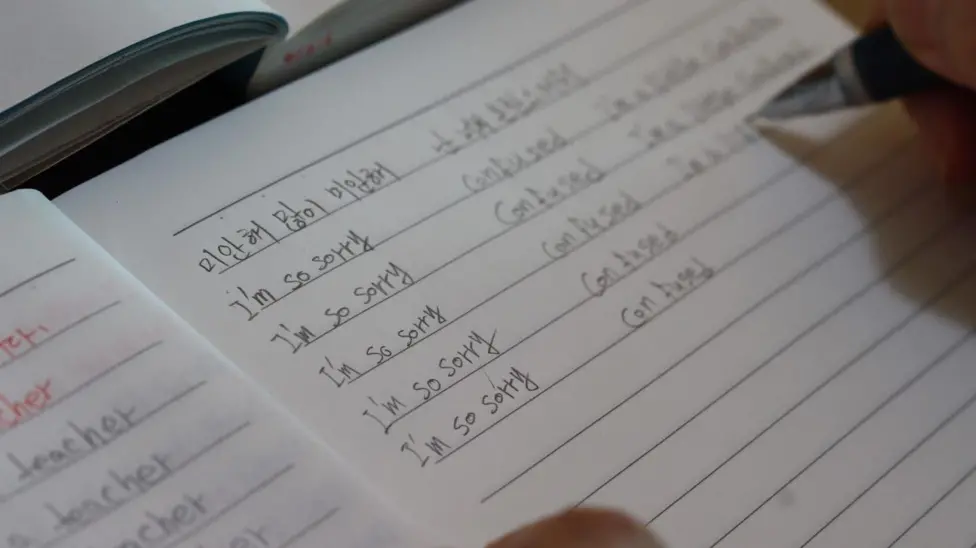 미안해 많이 미안해
I'm so sorry confused I'm a little confused
I'm so sorry confused I'm a little confused
I'm so sorry confused I'm a
I'm so sorry confused
I'm so sorry confused
cher
teacher
a teacher
acher